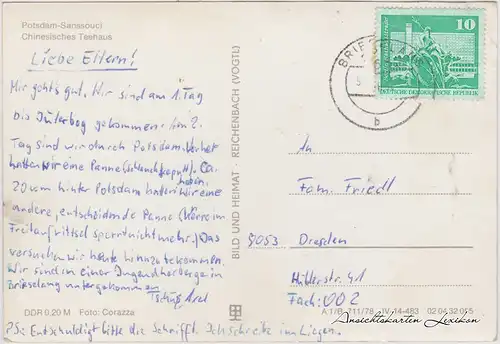 Potsdam-Sanssouci
Chinesisches Teehaus
Liebe Eltern!
Mir gehts gut. Wir sind am 1. Tag
bis Jüterbog gekommen. Am 2.
Tag sind wir durch Potsdam. Vorher
hatten wir eine Panne (Schlauch kaputt). Ca.
20 km hinter Potsdam hatten wir eine
haben.
andere, entscheidende Panne (
Freilaufrittzel sperrt nicht mehr). Das
versuchen wir heute hinzubekommen.
Wir sind in einer Jugendherberge in
Brieselang untergekommen.
Tschüß Axel
DDR 0,20 M Foto: Corazza
PS: Entschuldigt bitte die Schrift. Ich schreibe im Liegen.
BILD UND HEIMAT · REICHENBACH (VOGTL)
BRIESELANG
b
10
DEUTSCHE DEMOKRATISCHE REPUBLIK
An
Fam. Friedl
8053 Dresden
Hüblerstr. 41
Fach: 002
A 1/B 711/78 IV-14-483 02 04 32 015
Ansichtskarten Lexikon